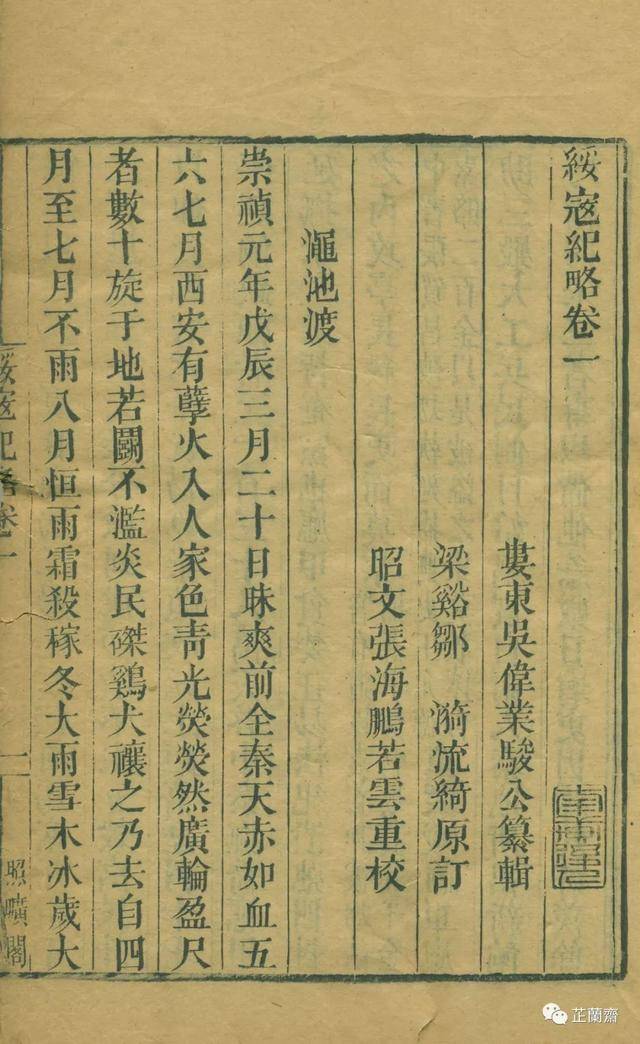 綏寇紀略卷一
婁東吳偉業駿公纂輯
梁谿鄒　漪流綺原訂
昭文張海鵬若雲重校
澠池渡
崇禎元年戊辰三月二十日昧爽前全秦天赤如血五
六七月西安有孽火入人家色青光熒熒然廣輪盈尺
者數十旋于地若鬬不濫炎民磔鷄犬禳之乃去自四
月至七月不雨八月恒雨霜殺稼冬大雨雪木冰歲大
綏寇紀略卷一
一
照曠閣
芷蘭齋